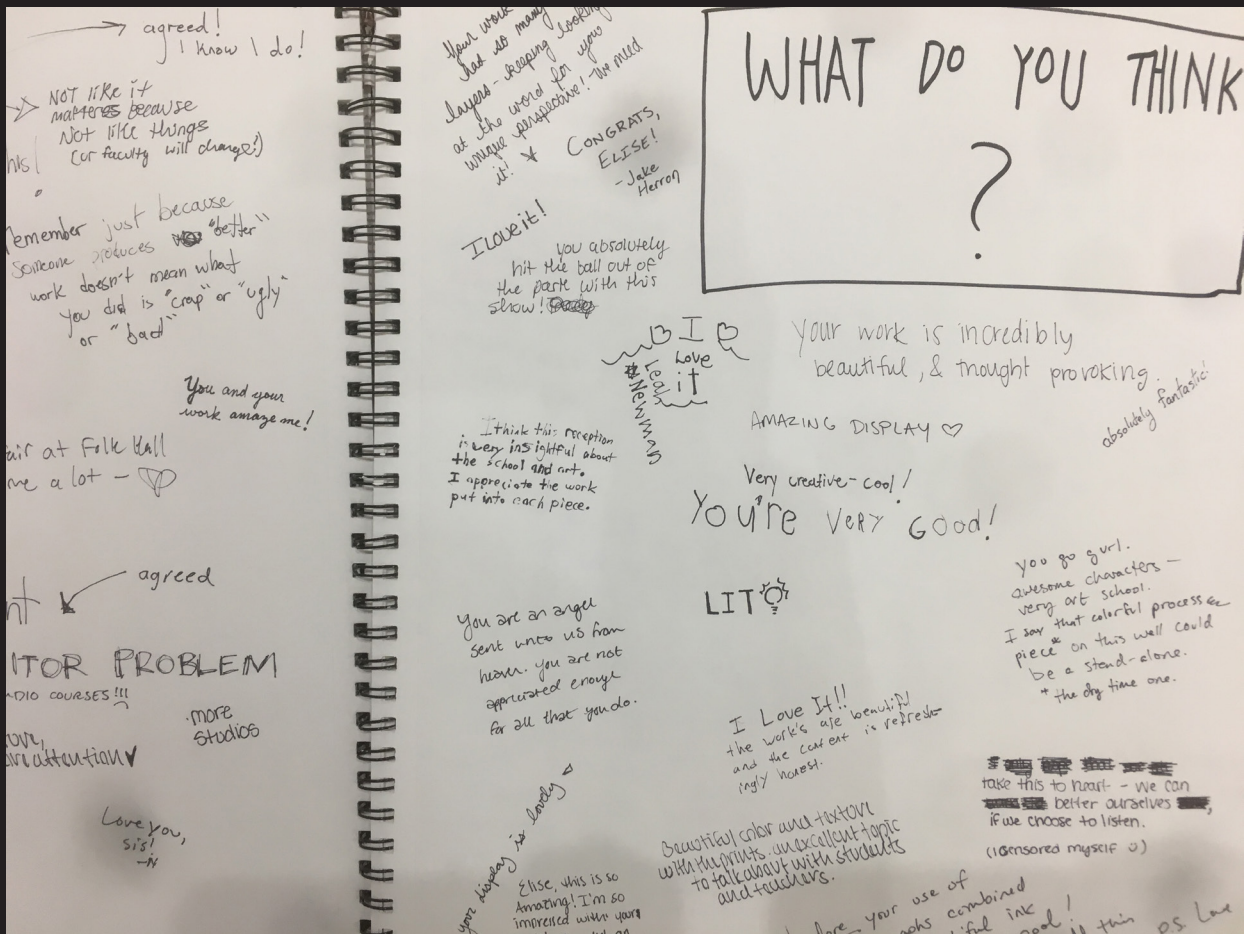 agreed!
I know I do!
NOT like it
matters because
Not like things
(or faculty will change!)
his!
Remember just because
someone produces "better"
work doesn't mean what
you did is "crap" or "ugly"
or "bad"
You and your
work amaze me!
air at Folk Hall
me a lot -
agreed
nt
ITOR PROBLEM
DIO COURSES!!!
.more
studios
ove,
are attention
Love you,
sis!
-N
Your work
had so many
layers - keeping looking
at the word for you
unique perspective! We need
it!
CONGRATS,
ELISE!
- Jake
Herron
I Love it!
you absolutely
hit the ball out of
the park with this
show!
I
Love
it
Leah
#Newman
I think this reception
is very insightful about
the school and art.
I appreciate the work
put into each piece.
You are an angel
sent unto us from
heaven. you are not
appreciated enough
for all that you do.
your display is lovely
Elise, this is so
Amazing! I'm so
impressed with your
WHAT DO YOU THINK
?
Your work is incredibly
beautiful, & thought provoking.
absolutely fantastic!
AMAZING DISPLAY ♡
Very creative - cool!
You're VERY GOOD!
LIT
you go gurl.
awesome characters —
very art school.
I say that colorful process
piece * on this wall could
be a stand-alone.
* the dry time one.
I Love It!!
the work's are beautiful
and the content is refresh-
ingly honest.
take this to heart - we can
better ourselves,
if we choose to listen.
(I censored myself ☺)
Beautiful color and texture
with the prints. an excellent topic
to talk about with students
and teachers.
your use of
combined
ink
this p.s. Love